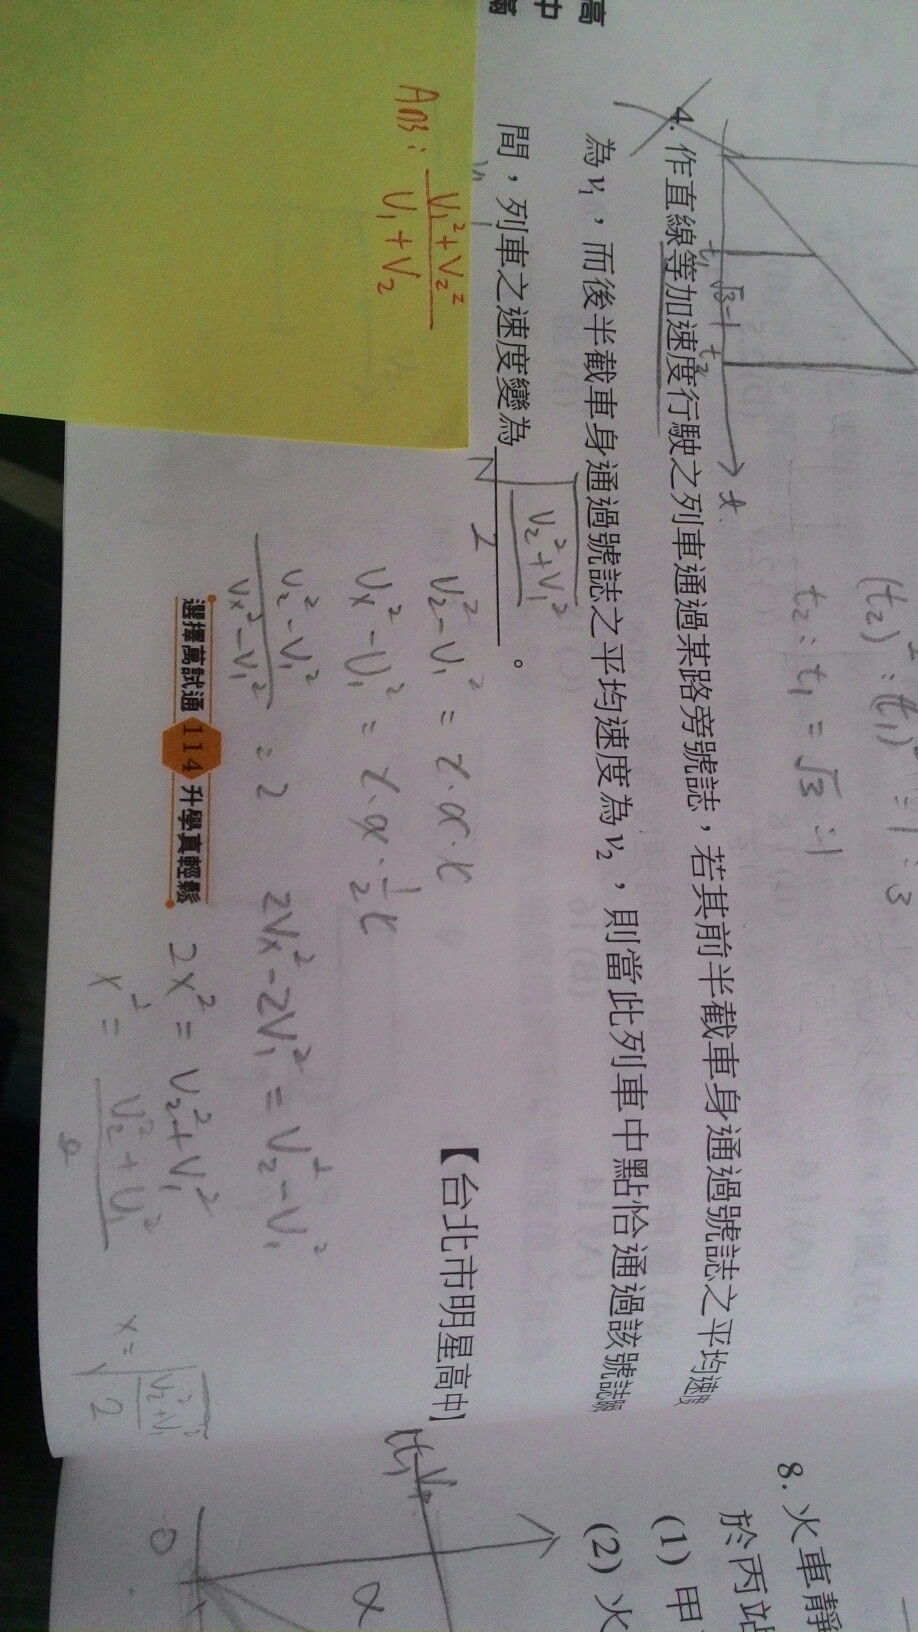 高
中
(t₂)²:(t₁)²=1:3
t₂:t₁=√3:1
t₁ √3-1 t₂
t
4. 作直線等加速度行駛之列車通過某路旁號誌,若其前半截車身通過號誌之平均速度
為v₁,而後半截車身通過號誌之平均速度為v₂,則當此列車中點恰通過該號誌瞬
間,列車之速度變為 √(V₂²+V₁²)/2 。
【台北市明星高中】
Ans: (V₁²+V₂²)/(V₁+V₂)
V₂²-V₁²=2·a·x
Vx²-V₁²=2·a·½x
(V₂²-V₁²)/(Vx²-V₁²)=2
2Vx²-2V₁²=V₂²-V₁²
2x²=V₂²+V₁²
x²=(V₂²+V₁²)/2
x=√((V₂²+V₁²)/2)
選擇萬試通 114 升學真輕鬆
8. 火車靜
於丙站
(1) 甲
(2) 火
0